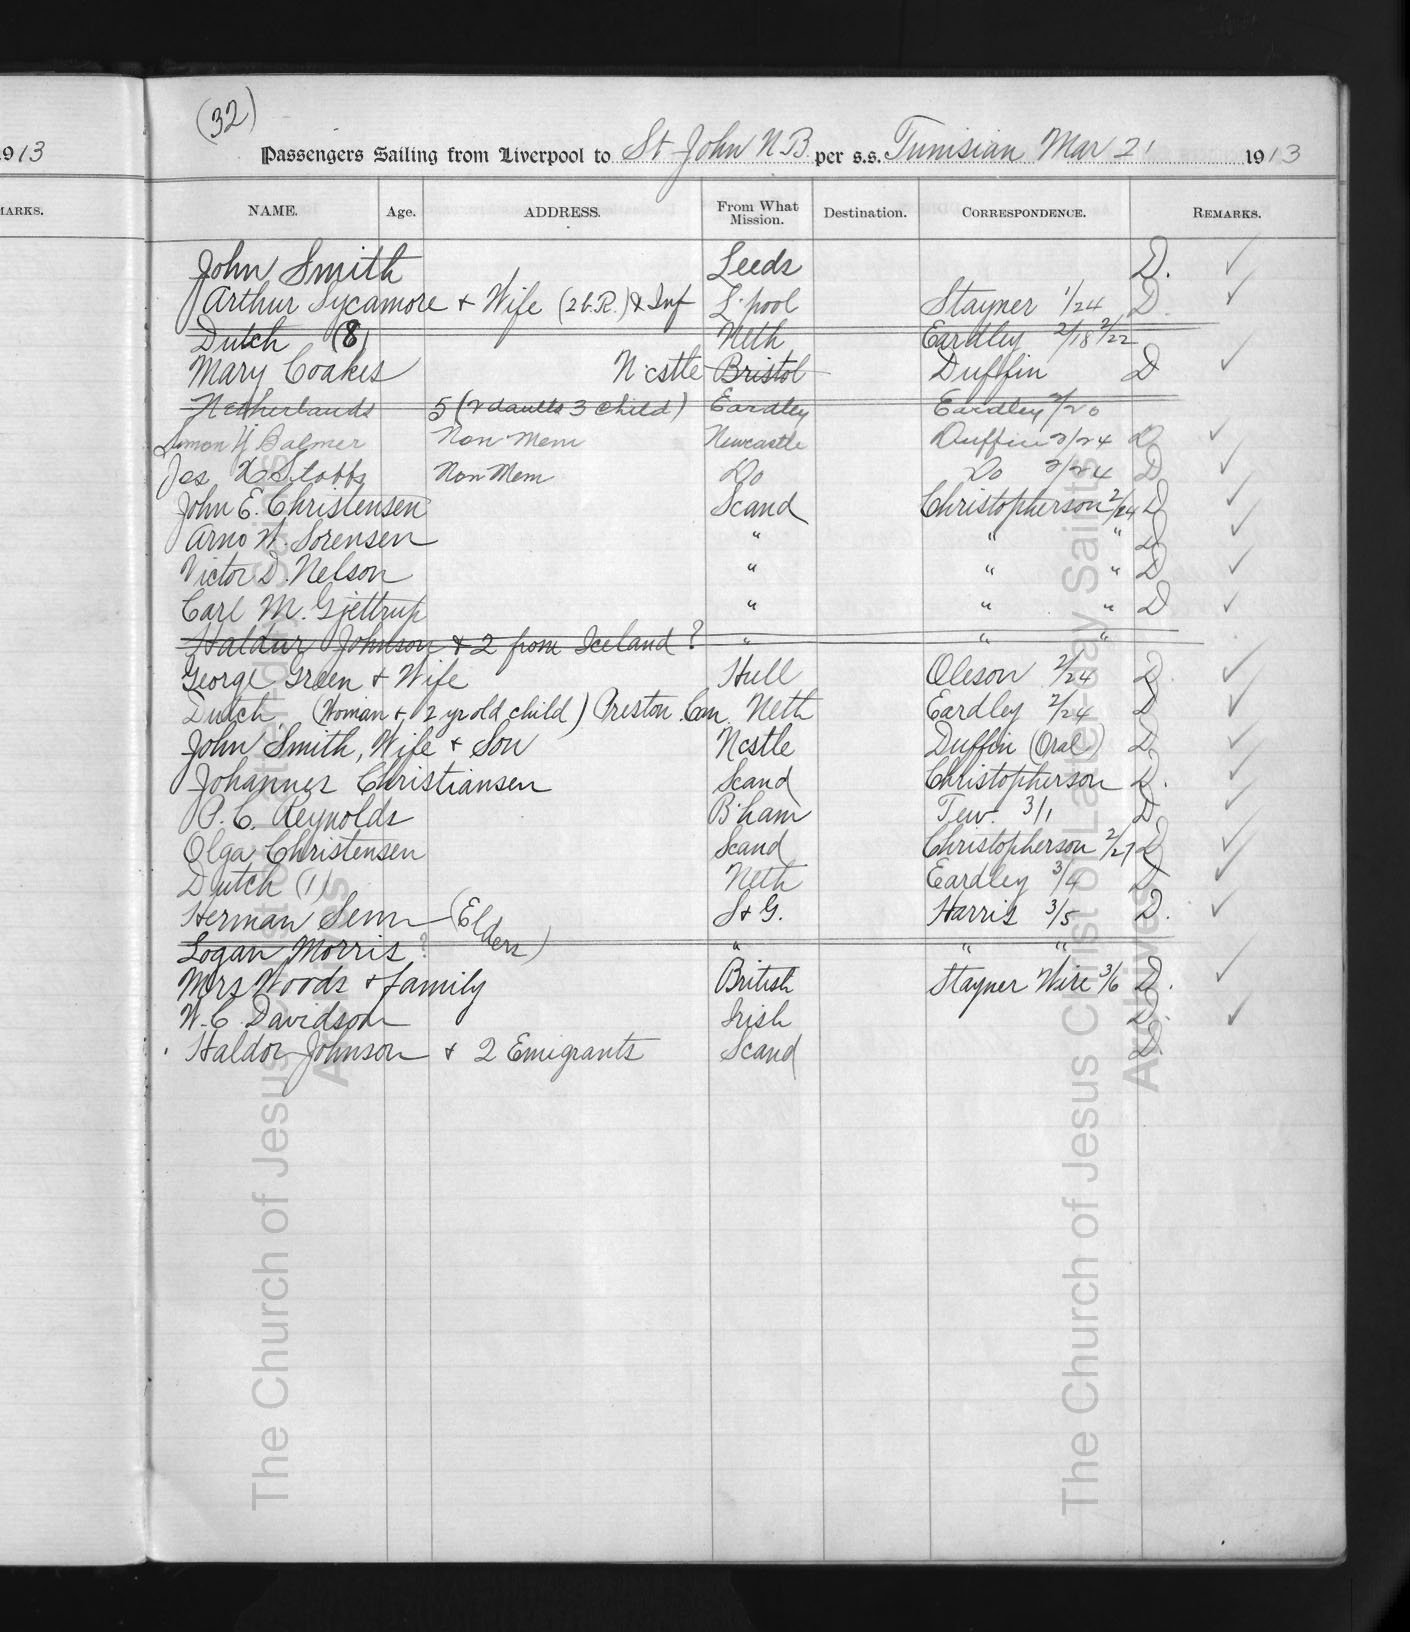 (32)
1913
Passengers Sailing from Liverpool to St John N B per s.s. Tunisian Mar 21 1913
MARKS.
NAME. Age. ADDRESS. From What Mission. Destination. CORRESPONDENCE. REMARKS.
John Smith Leeds D. ✓
Arthur Sycamore + Wife (2 b.R.) & Inf L'pool Stayner 1/24 D. ✓
Dutch (8) Neth Eardley 2/18 2/22
Mary Coakes N'cstle Bristol Duffin D ✓
Netherlands 5 (2 daults 3 child) Eardley Eardley 2/20
Simon W Balmer Non Mem Newcastle Duffin 2/24 D ✓
Jos Stobbs Non Mem Do Do 2/24 D ✓
John E. Christensen Scand Christopherson 2/24 D ✓
Arno W. Sorensen " " " D ✓
Victor D. Nelson " " " D ✓
Carl M. Gjettrup " " " D ✓
Haldur Johnson + 2 from Iceland ? " " "
George Green + Wife Hull Oleson 2/24 D. ✓
Dutch (Woman + 2 yr old child) Preston. Can. Neth Eardley 2/24 D ✓
John Smith, Wife + Son Ncstle Duffin (Oral) D ✓
Johannes Christiansen Scand Christopherson D. ✓
P. C. Reynolds B'ham Tew. 3/1 D ✓
Olga Christensen Scand Christopherson 2/27 D ✓
Dutch (1) Neth Eardley 3/4 D ✓
Herman Senn (Elders) S + G. Harris 3/5 D. ✓
Logan Morris ? " " "
Mrs Woods + family British Stayner Wire 3/6 D. ✓
W. C. Davidson Irish D. ✓
Haldor Johnson + 2 Emigrants Scand D.
The Church of Jesus Christ of Latter-day Saints
Archives
The Church of Jesus Christ of Latter-day Saints
Archives